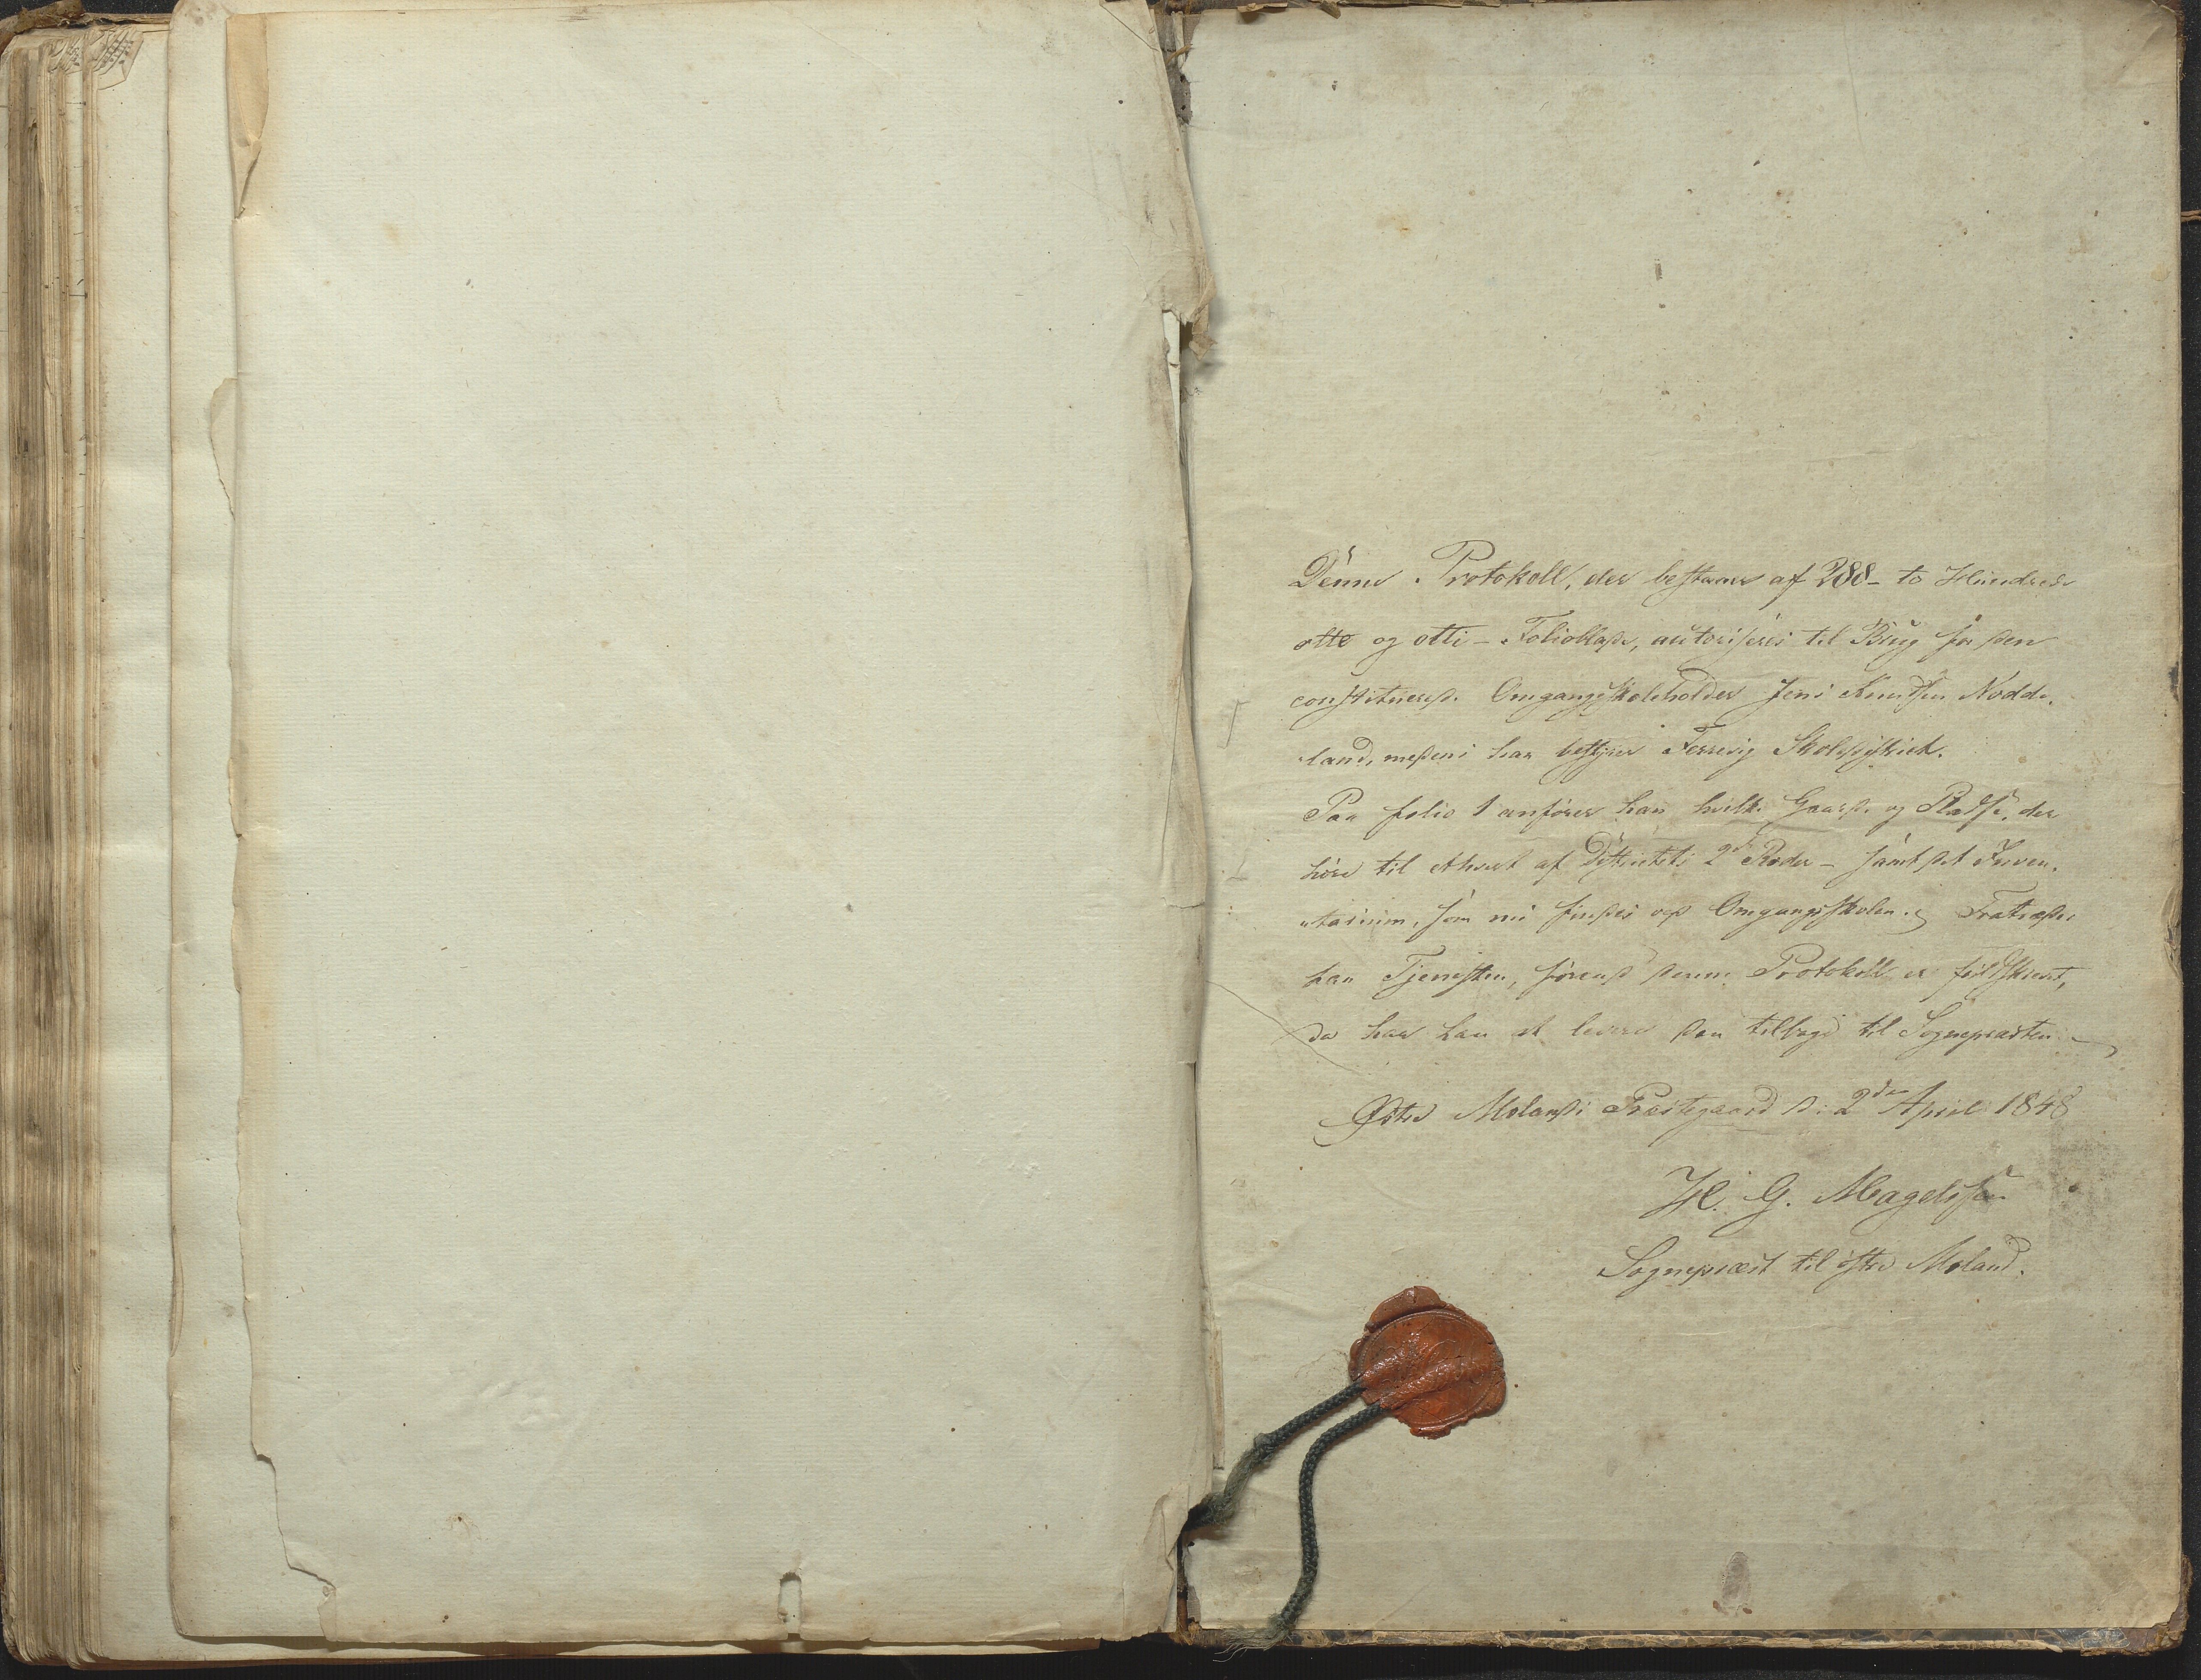 Denne Protokoll, der bestaaer af 288 – to Hundrede
otte og otti – Folioblade, autoriseres til Brug for den
constituerede Omgangsskoleholder Jens Knudsen Nødde-
land, medens han bestyrer Skoledistrict.
Paa folio 1 anfører han hvilke Gaarde og Pladse, der
høre til ethvert af Districtets 2de Roder – samt det Inven-
tarium, som nu findes ved Omgangsskolen. Fratræder
han Tjenesten, førend denne Protokoll er fuldskrevet,
da har han at levere den tilbage til Sognepræsten
Østre Molands Præstegaard d: 2den April 1848
H. G. Magelssen
Sognepræst til østre Moland.